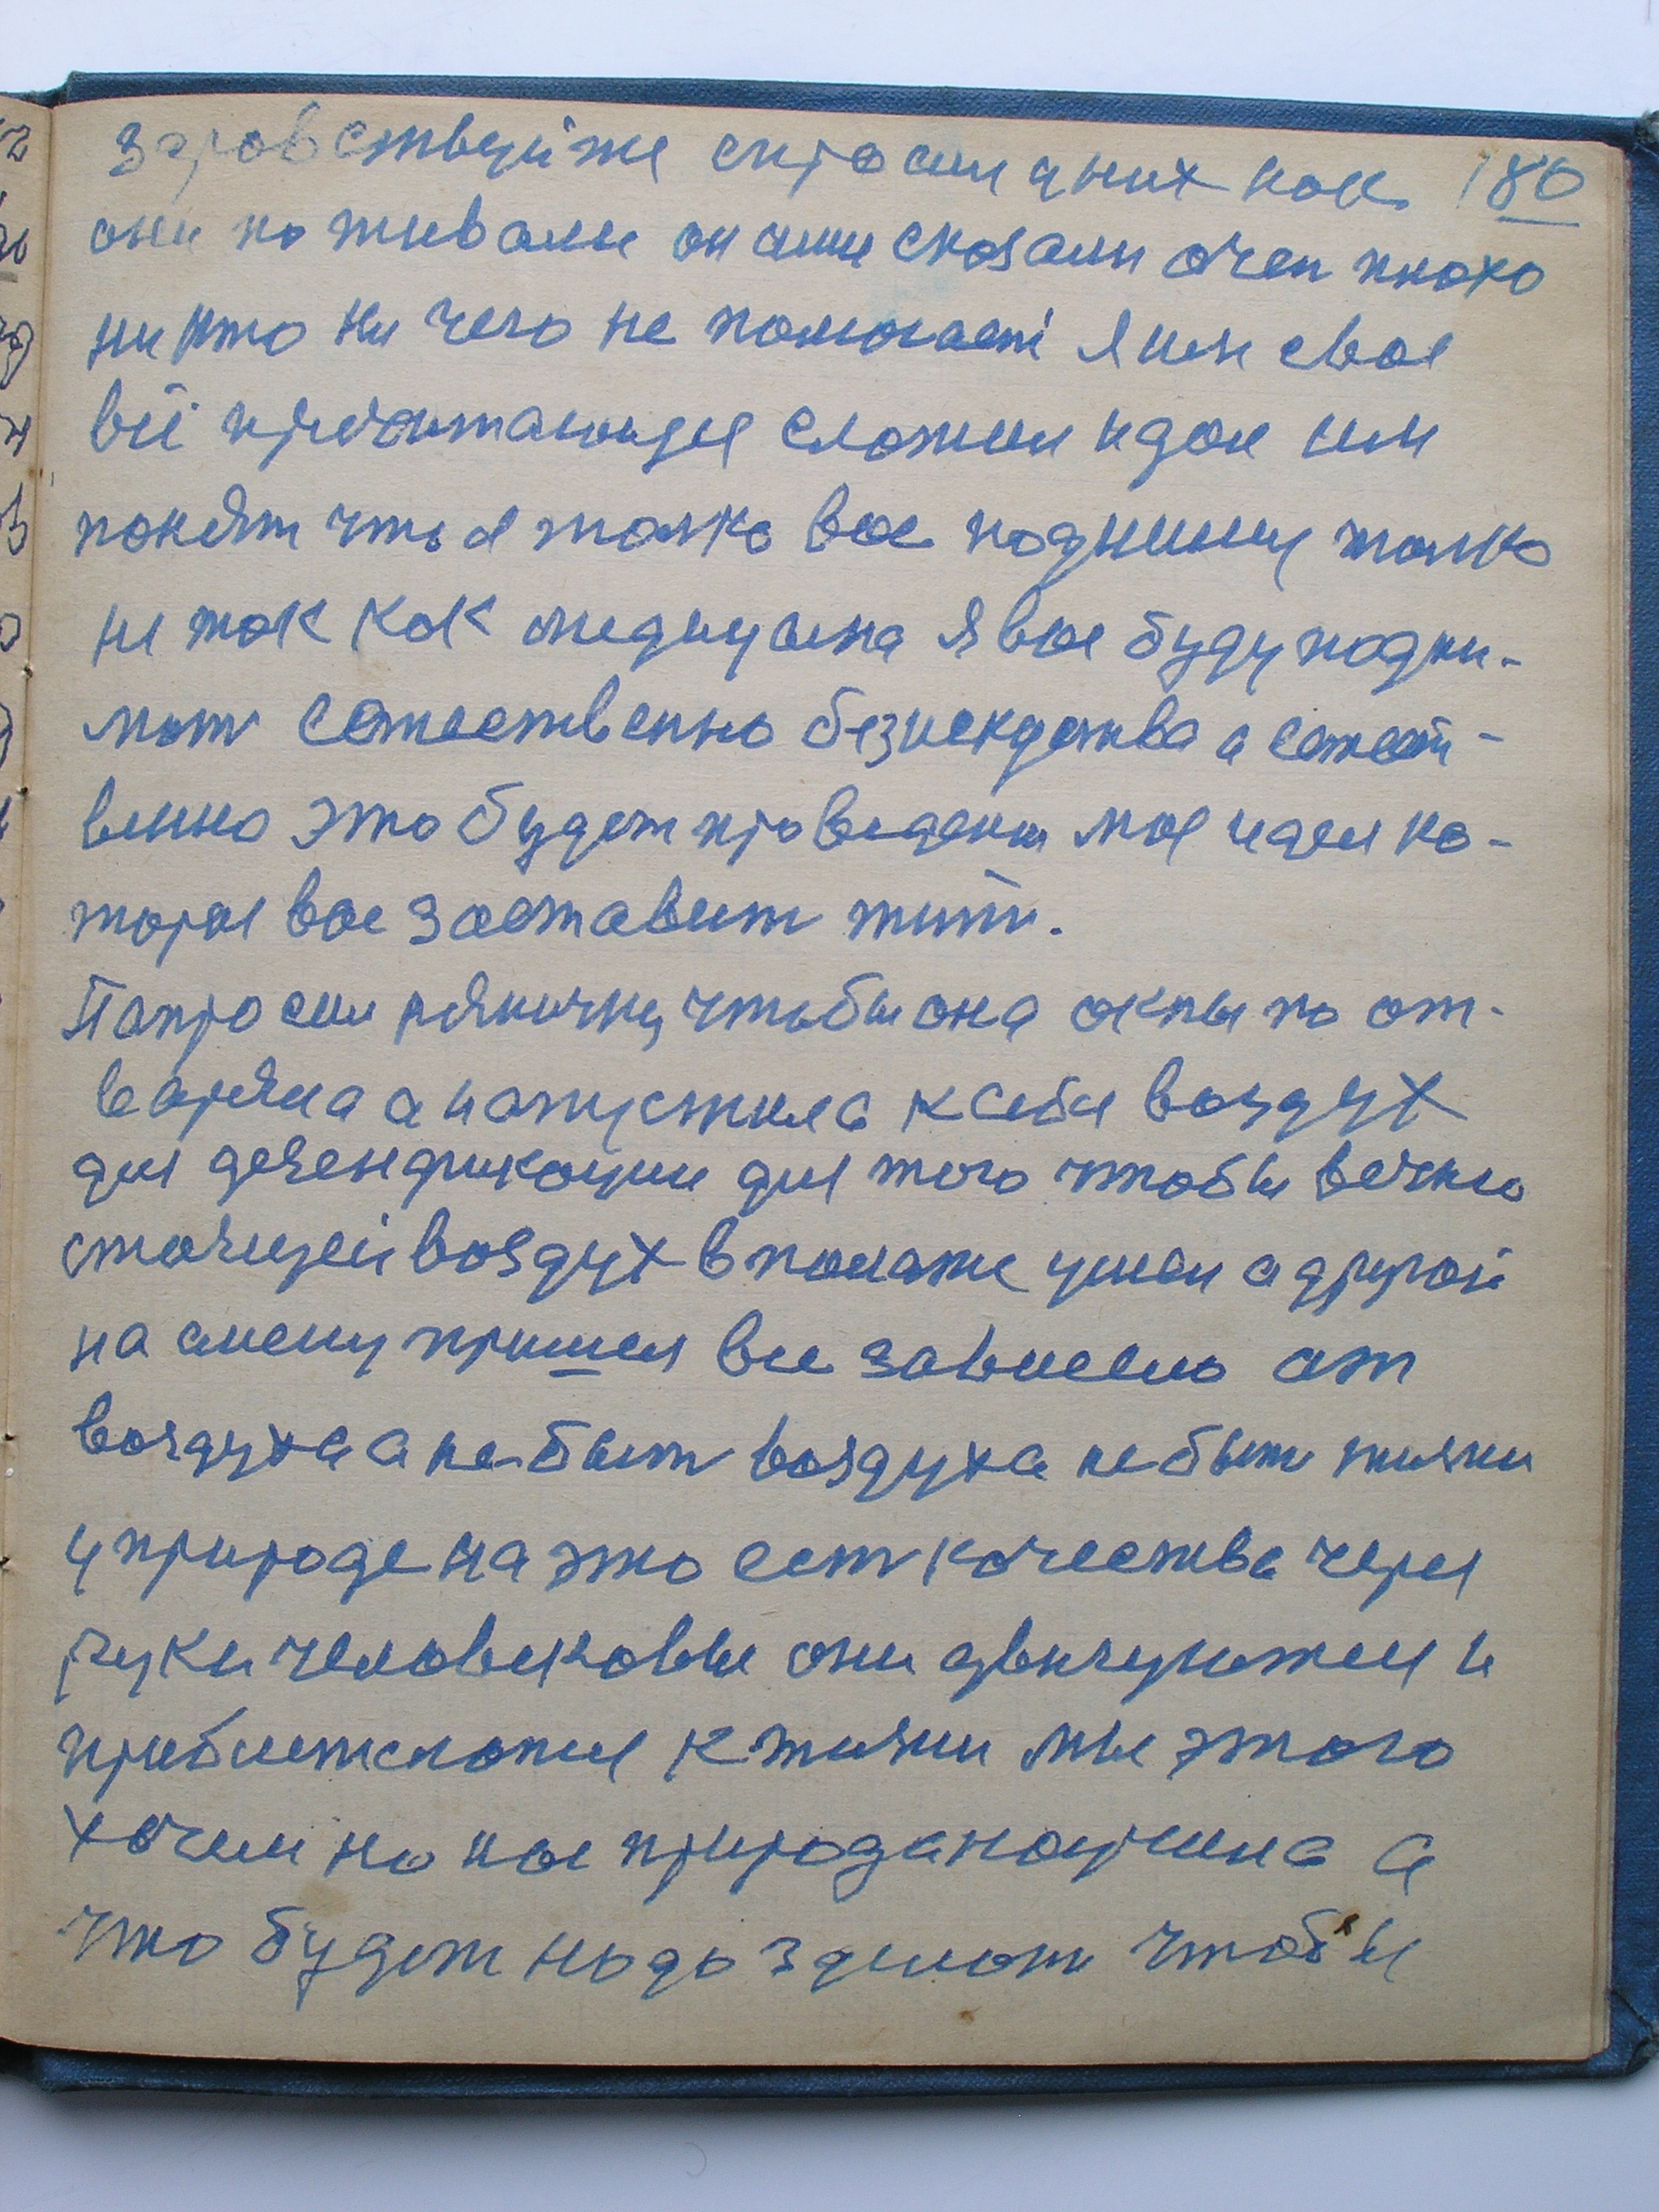 здровствуйте спросил у них как 180
они поживали он ими сказали очен плохо
нихто ни чего не помогает Я им свое
всё предлогающая сложил и дал им
понят что я толко вас подниму толко
не так как медицина Я вас буду подни-
мат естественно безискуства а естест-
венно это будет проведена мая идея ко-
торая вас заставит жит.
Папросил нянечку чтобы она окны по от-
варяла а напустила к себе воздух
для дезенфикации для того чтобы вечно
стоящей воздух в полате ушел а другой
на смену пришел все зависело от
воздуха а не быт воздуха не быт жизни
у природе на это ест качества через
руки человековы они двигуютея и
приближаютея к жизни мы этого
хочем но нас природа научила а
что будет надо зделат чтобы